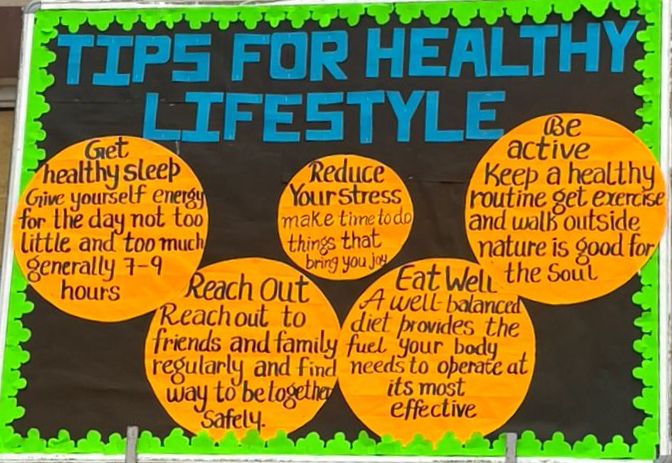 TIPS FOR HEALTHY
LIFESTYLE
Get
healthy sleep
Give yourself energy
for the day not too
little and too much
generally 7-9
hours
Reduce
Your stress
make time to do
things that
bring you joy
Be
active
Keep a healthy
routine get exercise
and walk outside
nature is good for
the Soul
Reach Out
Reach out to
friends and family
regularly and find
way to be together
Safely.
Eat Well
A well-balanced
diet provides the
fuel your body
needs to operate at
its most
effective